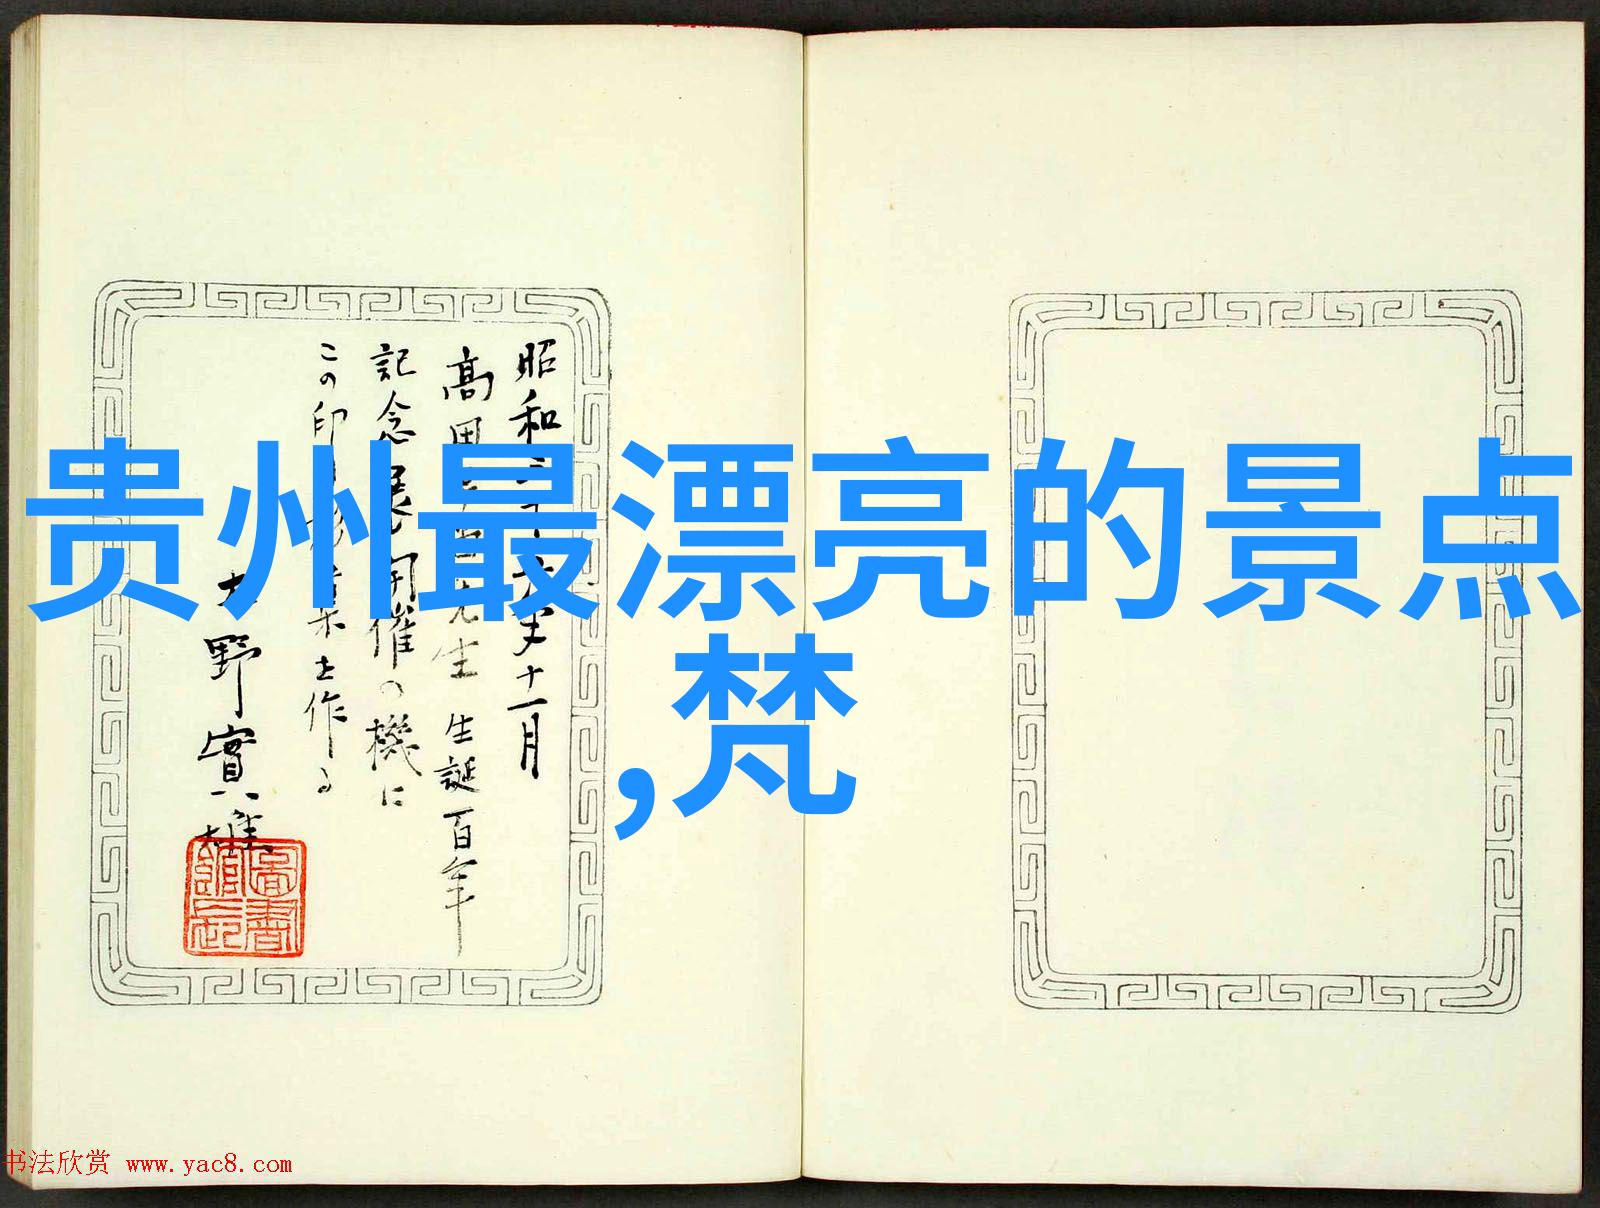 贵州最漂亮的景点
,梵
昭和二十六年十一月
高田先生 生誕百年
記念展開催の機に
この印作る
大野實雄
圖書館長
书法欣赏 www.yac8.com